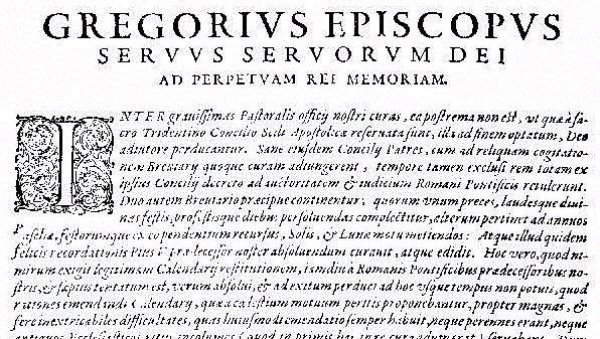 GREGORIVS EPISCOPVS
SERVVS SERVORVM DEI
AD PERPETVAM REI MEMORIAM.
INTER grauissimas Pastoralis officij nostri curas, ea postrema non est, vt quæ à sa-
cro Tridentino Concilio Sedi Apostolicæ reseruata sunt, illa ad finem optatum, Deo
adiutore perducantur. Sane eiusdem Concilij Patres, cum ad reliquam cogitatio-
nem Breuiarij quoque curam adiungerent, tempore tamen exclusi rem totam ex
ipsius Concilij decreto ad auctoritatem & iudicium Romani Pontificis retulerunt.
Duo autem Breuiario præcipue continentur, quorum vnum preces, laudesque diui-
nas festis, profestisque diebus persoluendas complectitur, alterum pertinet ad annuos
Paschæ, festorumque ex eo pendentium recursus, Solis, & Lunæ motu metiendos: Atque illud quidem
felicis recordationis Pius V. prædecessor noster absoluendum curauit, atque edidit. Hoc vero, quod ni-
mirum exigit legitimam Calendarij restitutionem, iamdiu à Romanis Pontificibus prædecessoribus no-
stris, & sæpius tentatum est, verum absolui, & ad exitum perduci ad hoc vsque tempus non potuit, quod
rationes emendandi Calendarij, quæ a cælestium motuum peritis proponebantur, propter magnas, &
fere inextricabiles difficultates, quas huiusmodi emendatio semper habuit, neque perennes erant, neque
antiquos Ecclesiasticos ritus incolumes (quod in primis hac in re curandum erat) seruabant.